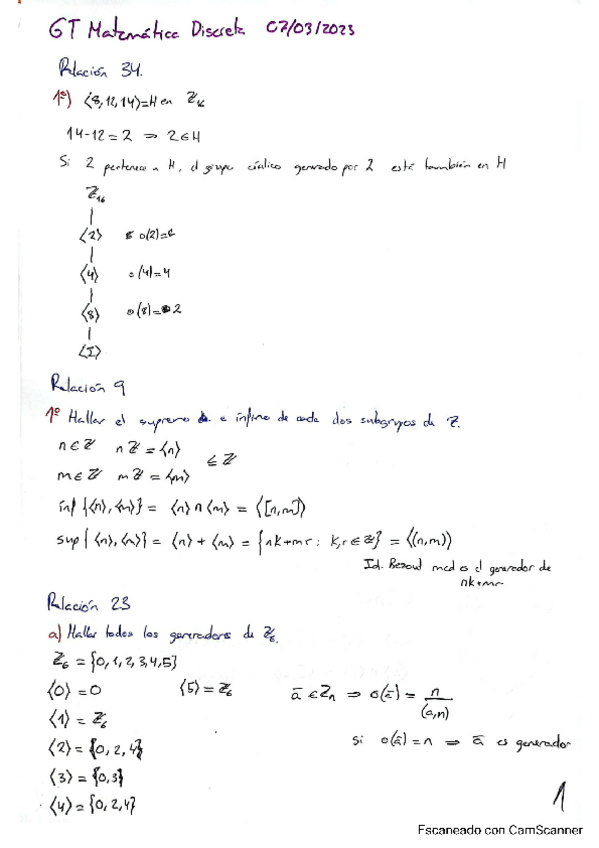 GT Matemática Discreta 07/03/2023
Relación 34.
1º) ⟨8,12,14⟩=H en Z₁₆
14-12=2 ⇒ 2∈H
Si 2 pertenece a H, el grupo cíclico generado por 2 está también en H
Z₁₆
|
⟨2⟩ o(2)=
|
⟨4⟩ o(4)=4
|
⟨8⟩ o(8)=2
|
⟨I⟩
Relación 9
1º Hallar el supremo e ínfimo de cada dos subgrupos de Z.
n∈Z nZ=⟨n⟩
≤Z
m∈Z mZ=⟨m⟩
inf{⟨n⟩,⟨m⟩} = ⟨n⟩∩⟨m⟩ = ⟨[n,m]⟩
sup{⟨n⟩,⟨m⟩} = ⟨n⟩+⟨m⟩ = {nk+mr : k,r∈Z} = ⟨(n,m)⟩
Id. Bezout mcd es el generador de
nk+mr
Relación 23
a) Hallar todos los generadores de Z₆.
Z₆ = {0,1,2,3,4,5}
⟨0⟩ = 0 ⟨5⟩ = Z₆ ā∈Zₙ ⇒ o(ā) = n/(a,n)
⟨1⟩ = Z₆
si o(ā)=n ⇒ ā es generador
⟨2⟩ = {0,2,4}
⟨3⟩ = {0,3}
⟨4⟩ = {0,2,4}
1
Escaneado con CamScanner